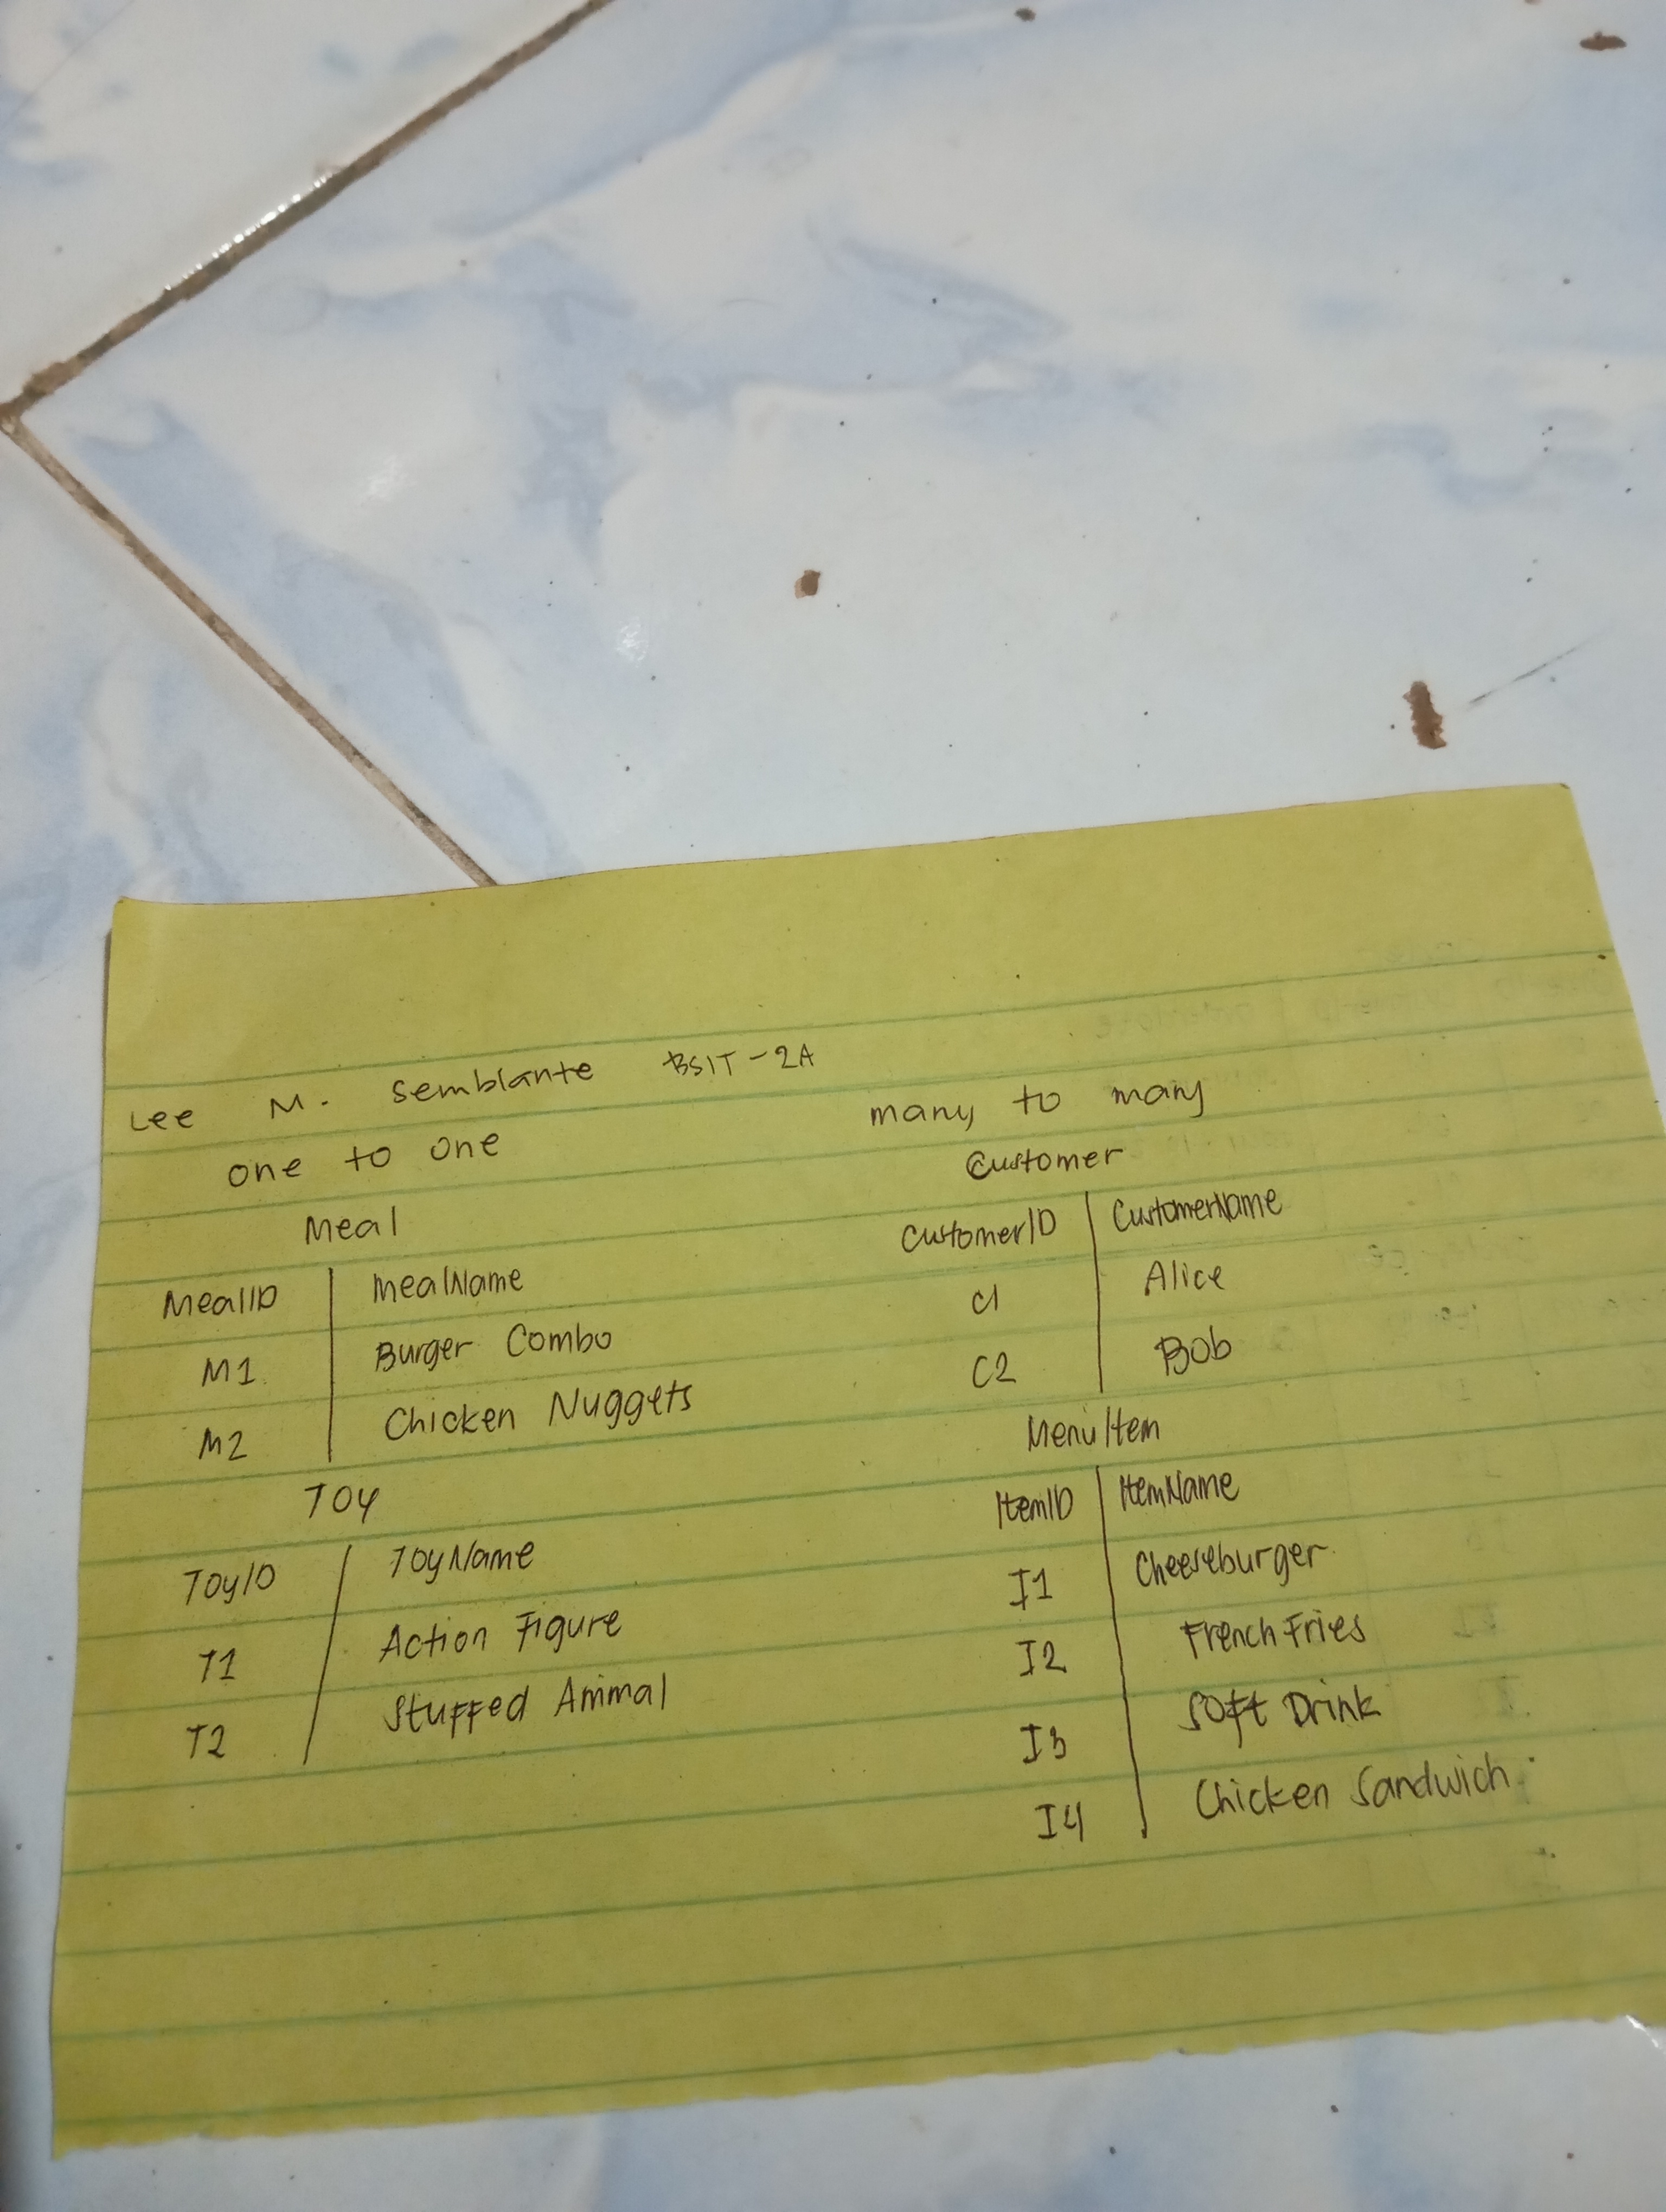 Lee M. Semblante BSIT-2A
one to one
Meal
MealID MealName
M1 Burger Combo
M2 Chicken Nuggets
Toy
ToyID ToyName
T1 Action Figure
T2 Stuffed Animal
many to many
Customer
CustomerID CustomerName
C1 Alice
C2 Bob
MenuItem
ItemID ItemName
I1 Cheeseburger
I2 French Fries
I3 Soft Drink
I4 Chicken Sandwich